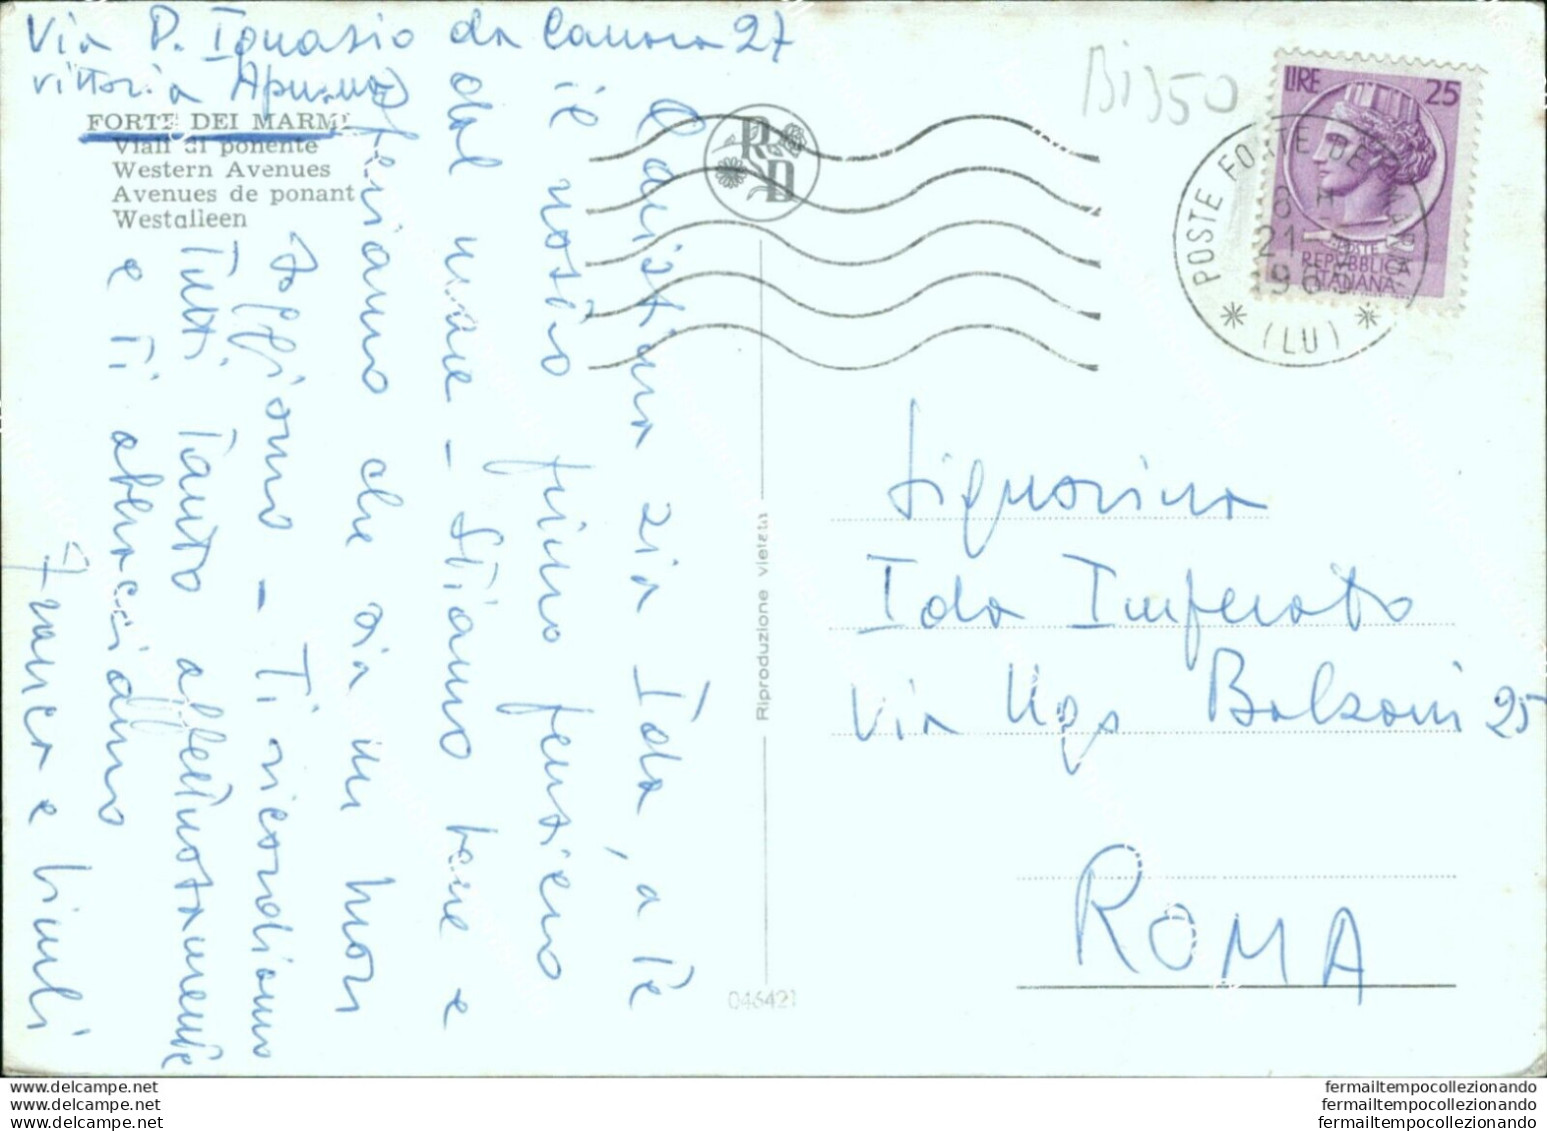 Via P. Ignazio da Carrara 27
Vittoria Apuana
FORTE DEI MARMI
Viali di ponente
Western Avenues
Avenues de ponant
Westalleen
Carissima zia Ida, a Te
il nostro primo pensiero
dal mare - Stiamo bene e
speriamo che sia un buon
soggiorno - Ti ricordiamo
Tutti tanto affettuosamente
e Ti abbracciamo
Franca e bimbi
RD
Riproduzione vietata
046421
Bi350
LIRE 25
REPVBBLICA
ITALIANA
POSTE FORTE DEI MARMI
(LU)
Signorina
Ida Imperato
Via Ugo Balzani 25
ROMA
delcampe.net
delcampe.net
delcampe.net
fermailtempocollezionando
fermailtempocollezionando
fermailtempocollezionando